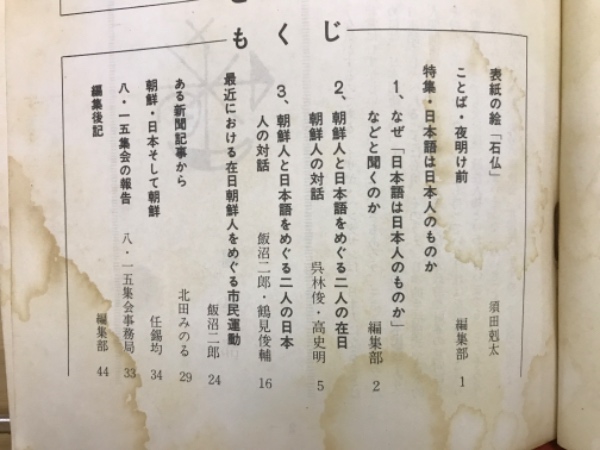 もくじ
表紙の絵「石仏」 須田剋太
ことば・夜明け前 編集部 1
特集・日本語は日本人のものか
1、なぜ「日本語は日本人のものか」
などと聞くのか 編集部 2
2、朝鮮人と日本語をめぐる二人の在日
朝鮮人の対話 呉林俊・高史明 5
3、朝鮮人と日本語をめぐる二人の日本
人の対話 飯沼二郎・鶴見俊輔 16
最近における在日朝鮮人をめぐる市民運動
飯沼二郎 24
ある新聞記事から 北田みのる 29
朝鮮・日本そして朝鮮 任錫均 34
八・一五集会の報告 八・一五集会事務局 33
編集後記 編集部 44